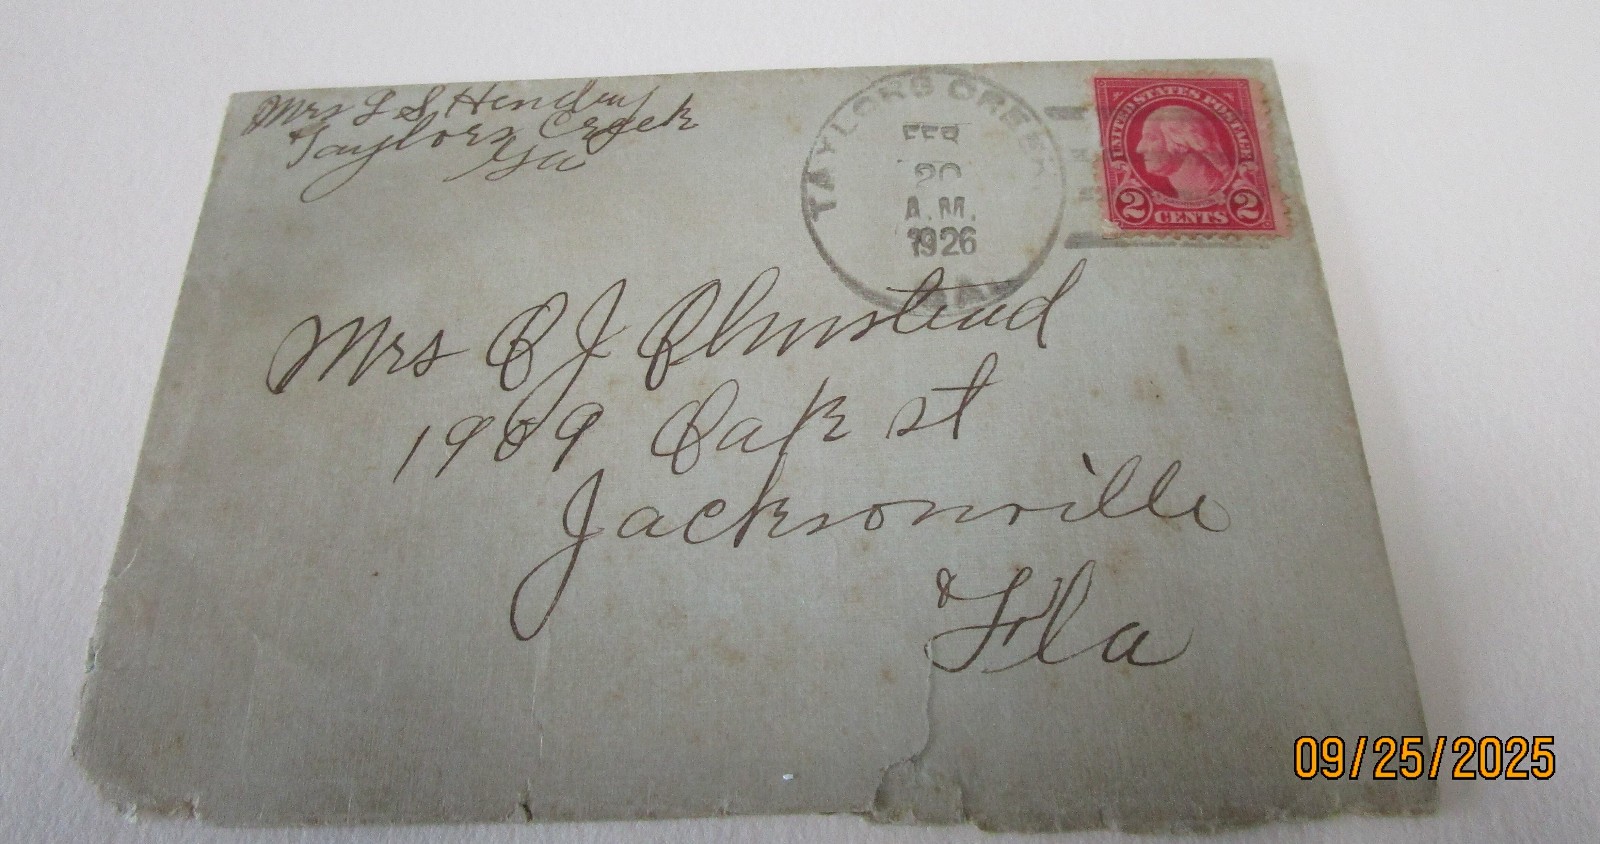 Mrs L S Hendry
Taylors Creek
Ga
TAYLORS CREEK
FEB
20
A.M.
1926
GA.
UNITED STATES POSTAGE
2 CENTS 2
Mrs O J Olmstead
1909 Oak st
Jacksonville
Fla
09/25/2025